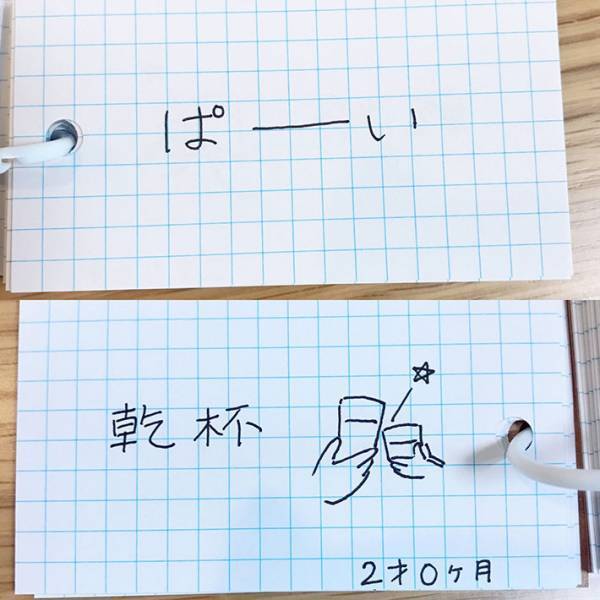 ぱーい
乾杯
2才0ヶ月